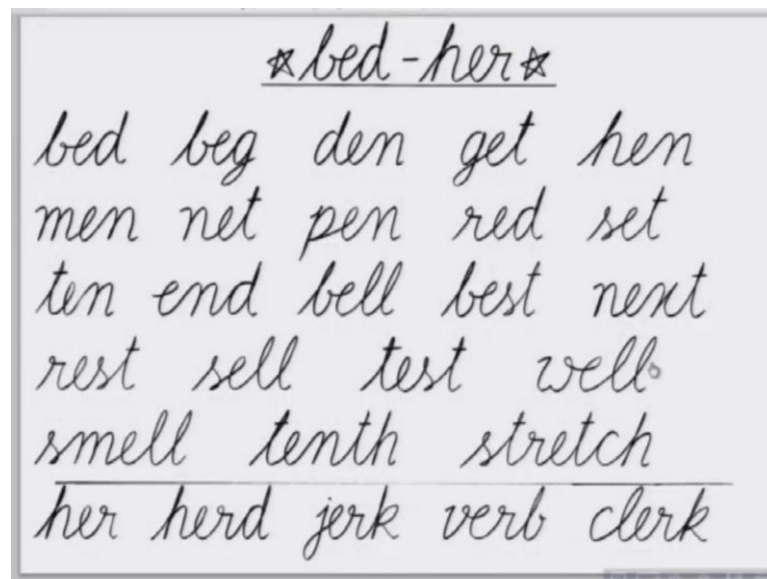 ☆bed-her☆
bed beg den get hen
men net pen red set
ten end bell best next
rest sell test well
smell tenth stretch
her herd jerk verb clerk